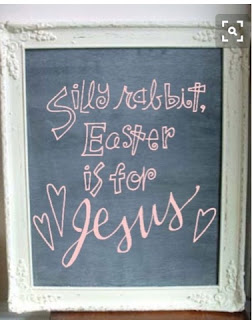 Silly rabbit,
Easter
is for
Jesus